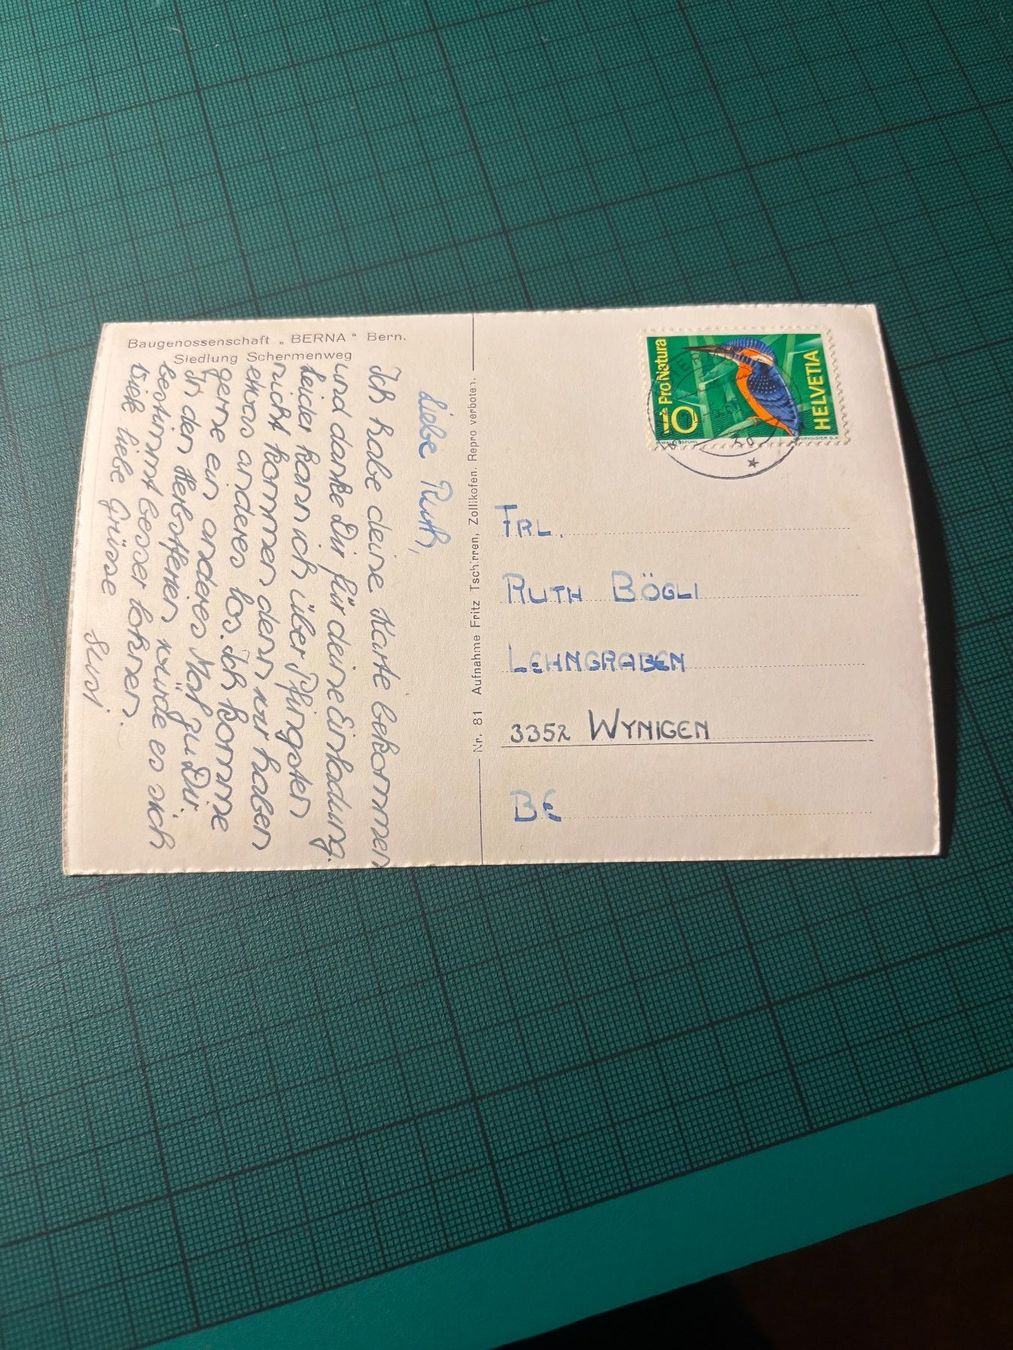 Baugenossenschaft „BERNA“ Bern.
Siedlung Schermenweg
Liebe Ruth,
Ich habe deine Karte bekommen
und danke Dir für deine Einladung.
Leider kann ich über Pfingsten
nicht kommen denn wir haben
etwas anderes los. Ich komme
gerne ein anderes Mal zu Dir.
In den Herbstferien würde es sich
bestimmt besser lohnen.
Viele liebe Grüsse
Susi
Nr. 81 Aufnahme Fritz Tschirren, Zollikofen. Repro verboten.
10 Pro Natura
HELVETIA
FRL.
RUTH BÖGLI
LEHNGRABEN
3352 WYNIGEN
BE